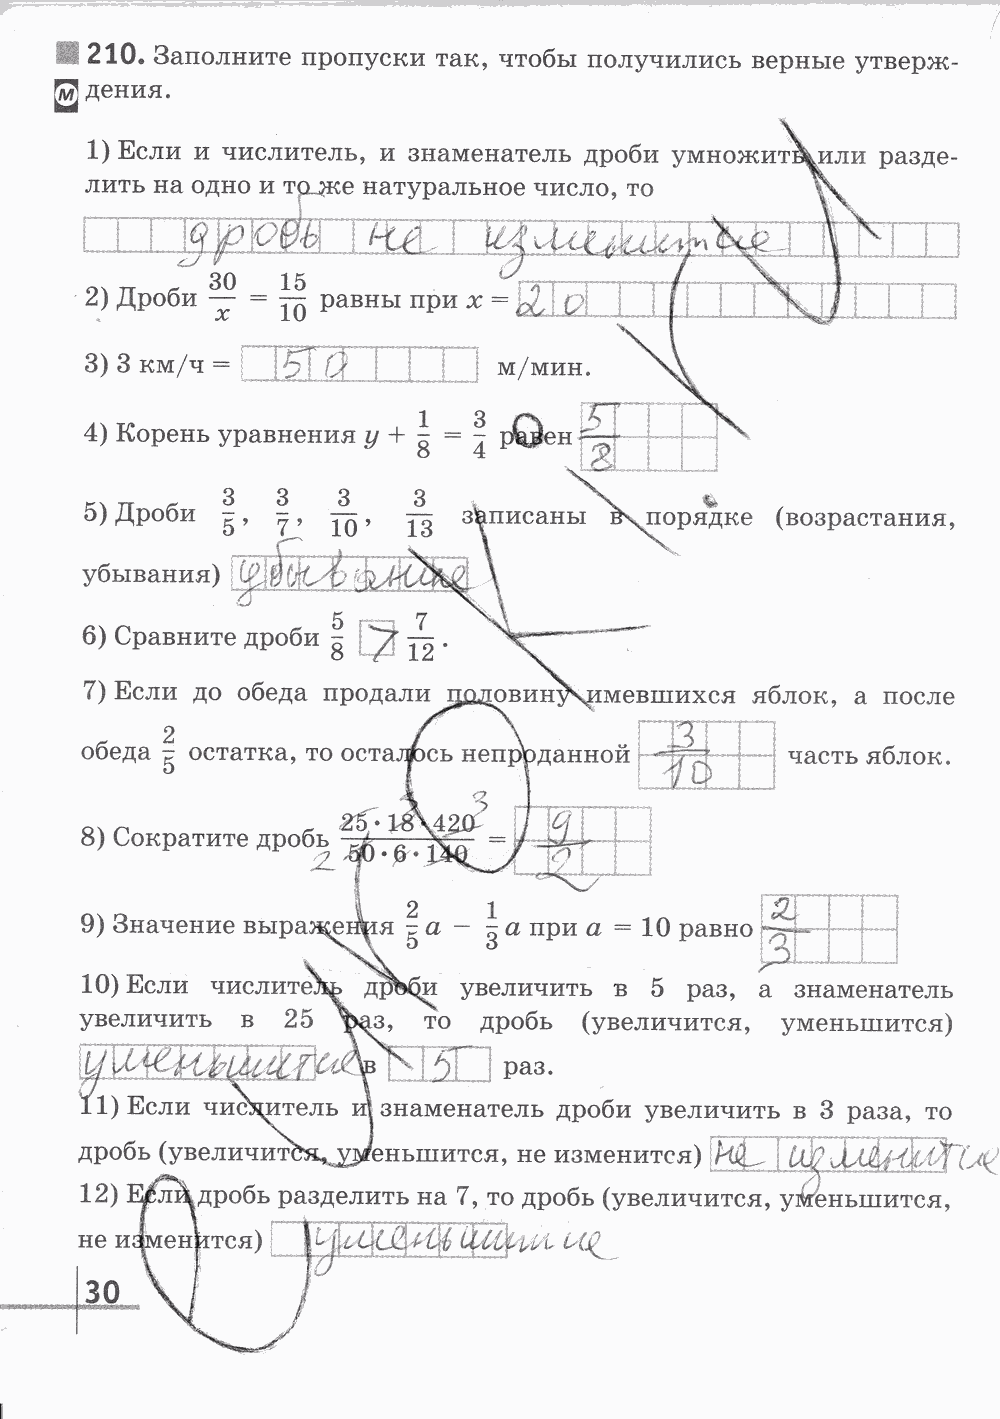 210. Заполните пропуски так, чтобы получились верные утверж-
М дения.
1) Если и числитель, и знаменатель дроби умножить или разде-
лить на одно и то же натуральное число, то
дробь не изменитые
2) Дроби 30/x = 15/10 равны при x = 20
3) 3 км/ч = 50 м/мин.
4) Корень уравнения y + 1/8 = 3/4 равен 5/8
5) Дроби 3/5, 3/7, 3/10, 3/13 записаны в порядке (возрастания,
убывания) убывание
6) Сравните дроби 5/8 > 7/12.
7) Если до обеда продали половину имевшихся яблок, а после
обеда 2/5 остатка, то осталось непроданной 3/10 часть яблок.
8) Сократите дробь 25·18·420/50·6·140 = 9/2
9) Значение выражения 2/5 a − 1/3 a при a = 10 равно 2/3
10) Если числитель дроби увеличить в 5 раз, а знаменатель
увеличить в 25 раз, то дробь (увеличится, уменьшится)
уменьшитые в 5 раз.
11) Если числитель и знаменатель дроби увеличить в 3 раза, то
дробь (увеличится, уменьшится, не изменится) не изменитые
12) Если дробь разделить на 7, то дробь (увеличится, уменьшится,
не изменится) уменьшитые
30